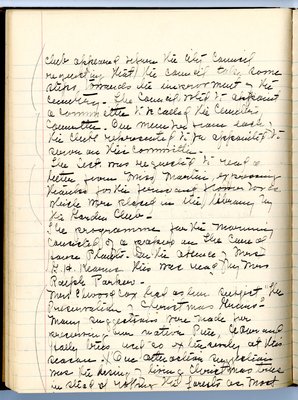 club appeared before the City Council
requesting that the Council take some
steps towards the improvement of the
cemetery. The Council voted to appoint
a committee to be called the Cemetery
Committee. One member from each
the clubs represented to be appointed to
serve on this committee.
The Sect. was requested to read a
letter from Mrs. Martin expressing
thanks for the ferns and flowers
which were placed in the library by
the Garden Club.
The programme for the morning
consisted of a paper on The Care of
House Plants. In the absence of Mrs
this was read by Mrs
Ralph Parker.
Mrs Elwood Cox had as her subject "The
Preservation of Christmas Greens"
Many suggestions were made for
preserving our native Pine, Cedar and
Holly trees used so extensively at this
season. One attractive suggestion
was the using of living Christmas trees
instead of robbing the forests as most